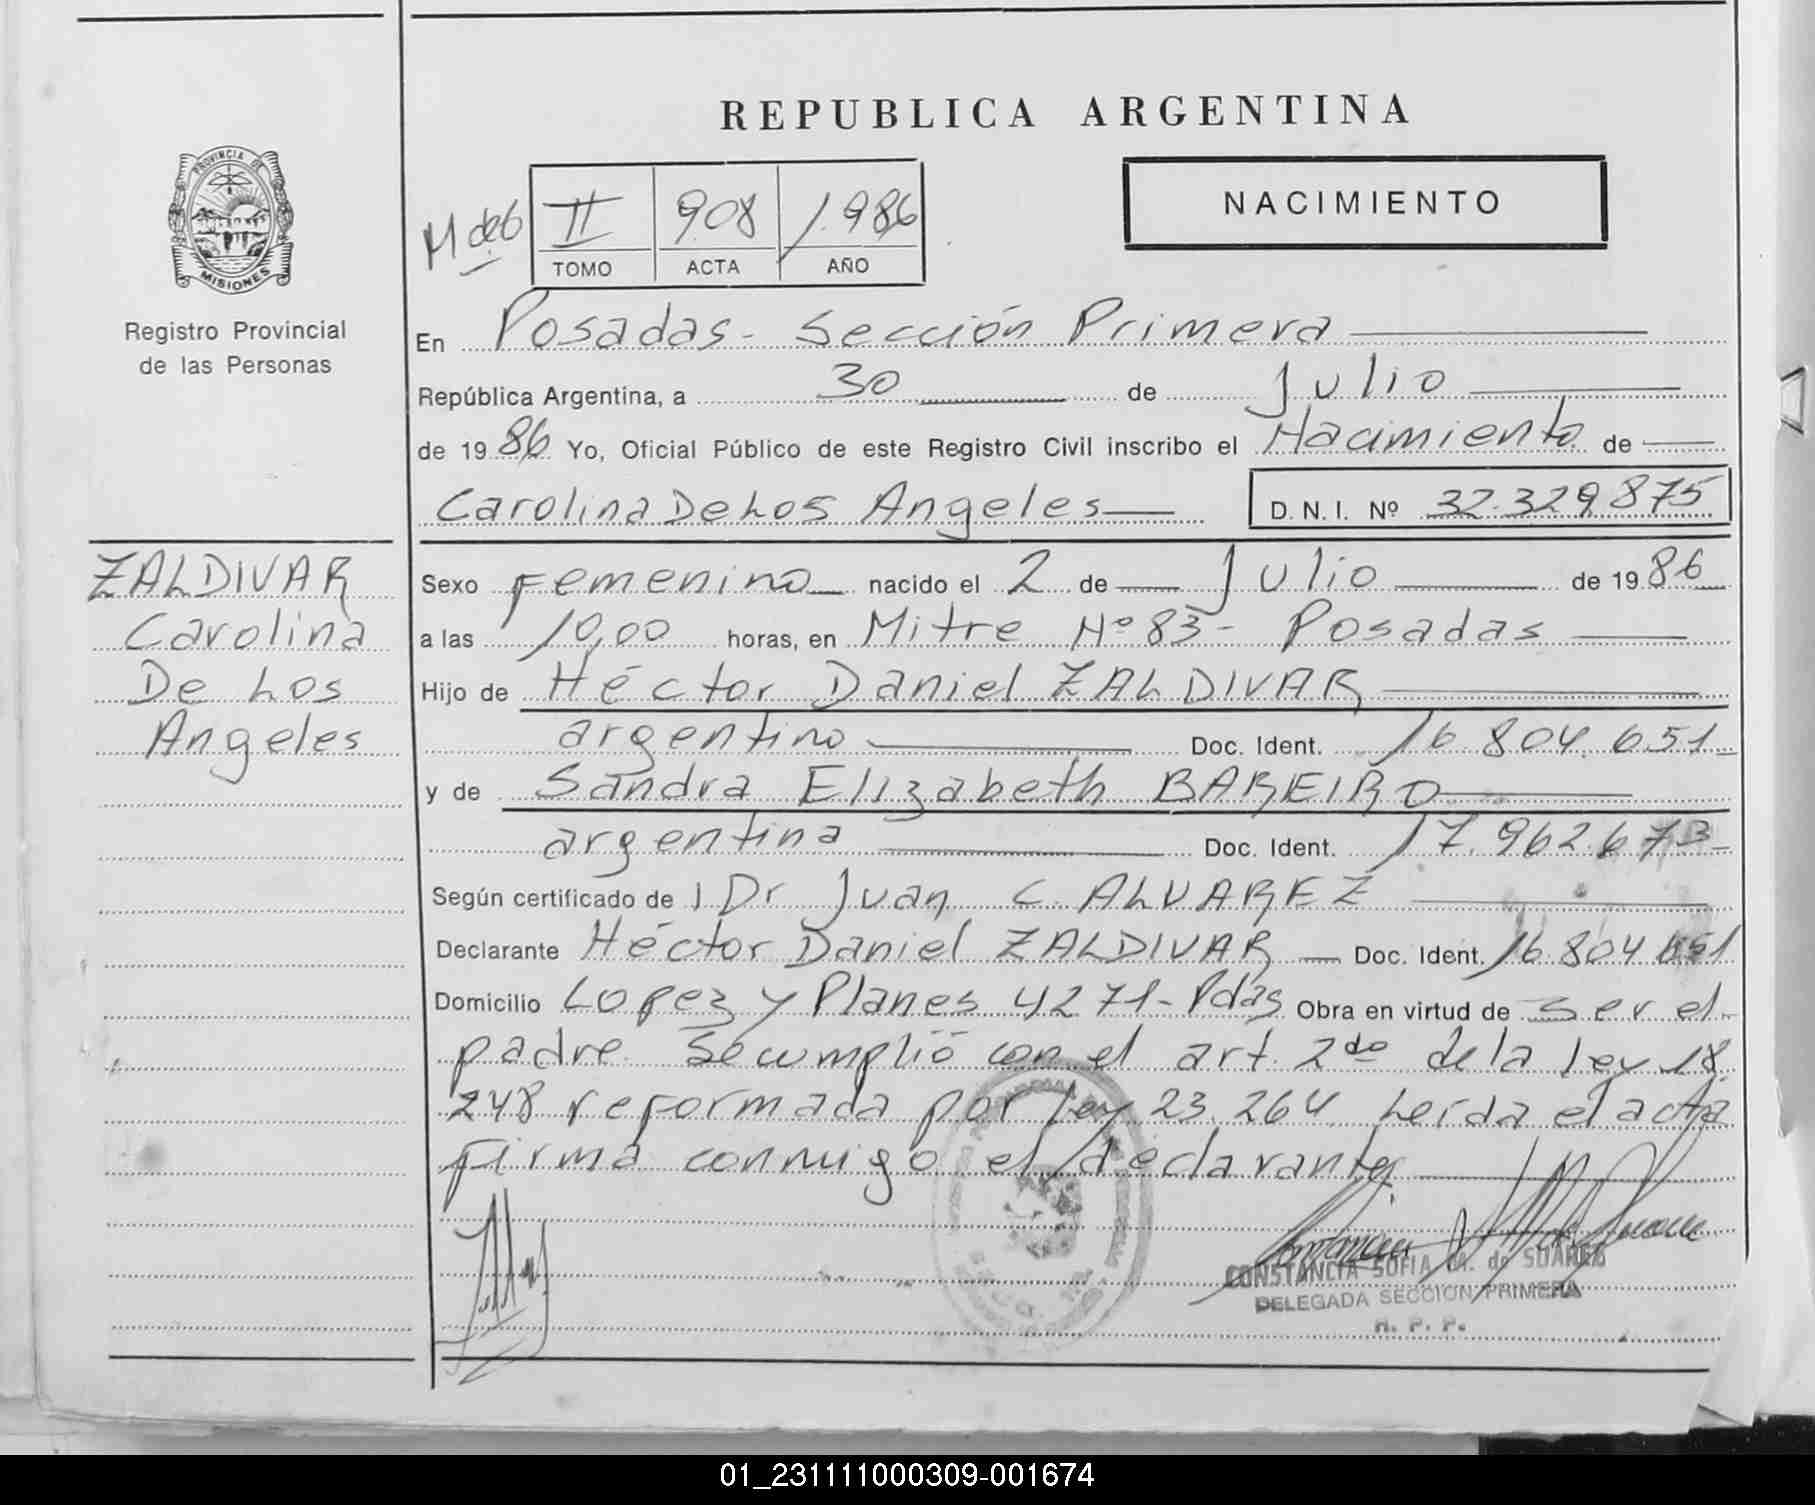 REPUBLICA ARGENTINA
PROVINCIA DE
MISIONES
Registro Provincial
de las Personas
II 908 1.986
TOMO ACTA AÑO
NACIMIENTO
En Posadas - Sección Primera
República Argentina, a 30 de Julio
de 1986 Yo, Oficial Público de este Registro Civil inscribo el Nacimiento de
Carolina De Los Angeles D.N.I. Nº 32.329.875
ZALDIVAR
Carolina
De Los
Angeles
Sexo Femenino nacido el 2 de Julio de 1986
a las 10,00 horas, en Mitre Nº 83 - Posadas
Hijo de Héctor Daniel ZALDIVAR
argentino Doc. Ident. 16.804.651
y de Sandra Elizabeth BAREIRO
argentina Doc. Ident. 17.962.673
Según certificado de Dr Juan C. ALVAREZ
Declarante Héctor Daniel ZALDIVAR Doc. Ident. 16.804.651
Domicilio Lopez y Planes 4271 - Pdas Obra en virtud de ser el
padre. Se cumplió con el art. 2do de la ley 18.
248 reformada por ley 23.264. Leída el acta
firma conmigo el declarante
CONSTANCIA SOFIA M. de SUAREZ
DELEGADA SECCION PRIMERA
R. P. P.
01_231111000309-001674